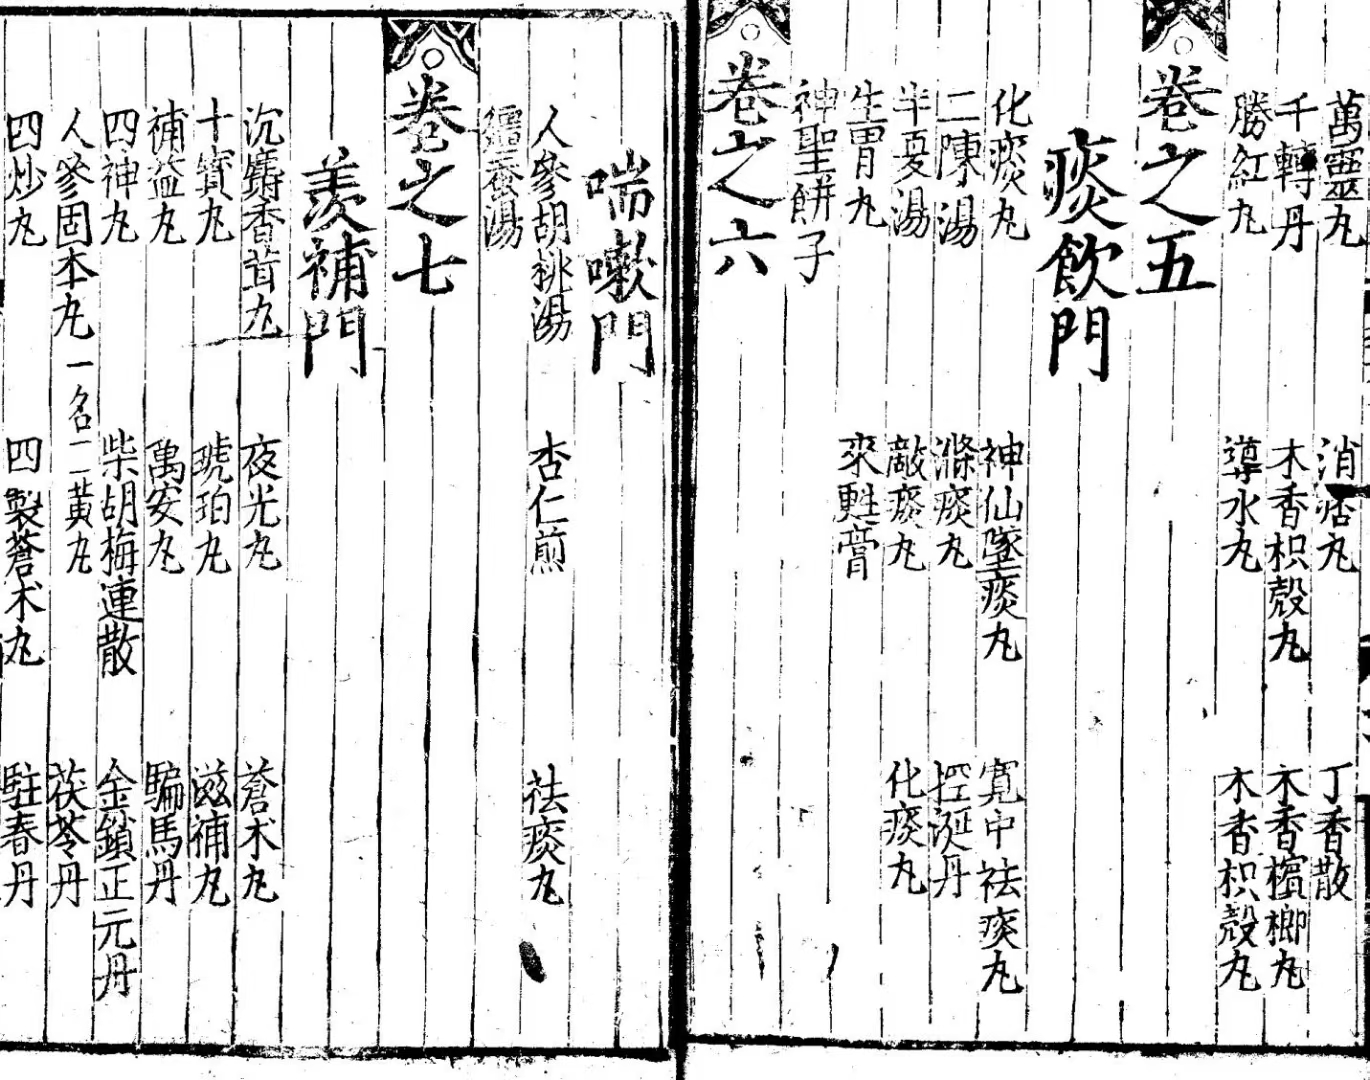 萬靈丸　消痞丸　丁香散
千轉丹　木香枳殼丸　木香檳榔丸
勝紅丸　導水丸　木香枳殼丸
卷之五
痰飲門
化痰丸　神仙墜痰丸　寬中祛痰丸
二陳湯　滌痰丸　控涎丹
半夏湯　敵痰丸　化痰丸
生胃丸　來甦膏
神聖餅子
卷之六
喘嗽門
人參胡桃湯　杏仁煎　祛痰丸
蚕湯
卷之七
羨補門
沉麝香茸丸　夜光丸　蒼术丸
十寶丸　琥珀丸　滋補丸
補益丸　萬安丸　騸馬丹
四神丸　柴胡梅連散　金鎖正元丹
人參固本丸一名二黃丸　茯苓丹
四炒丸　四製蒼术丸　駐春丹